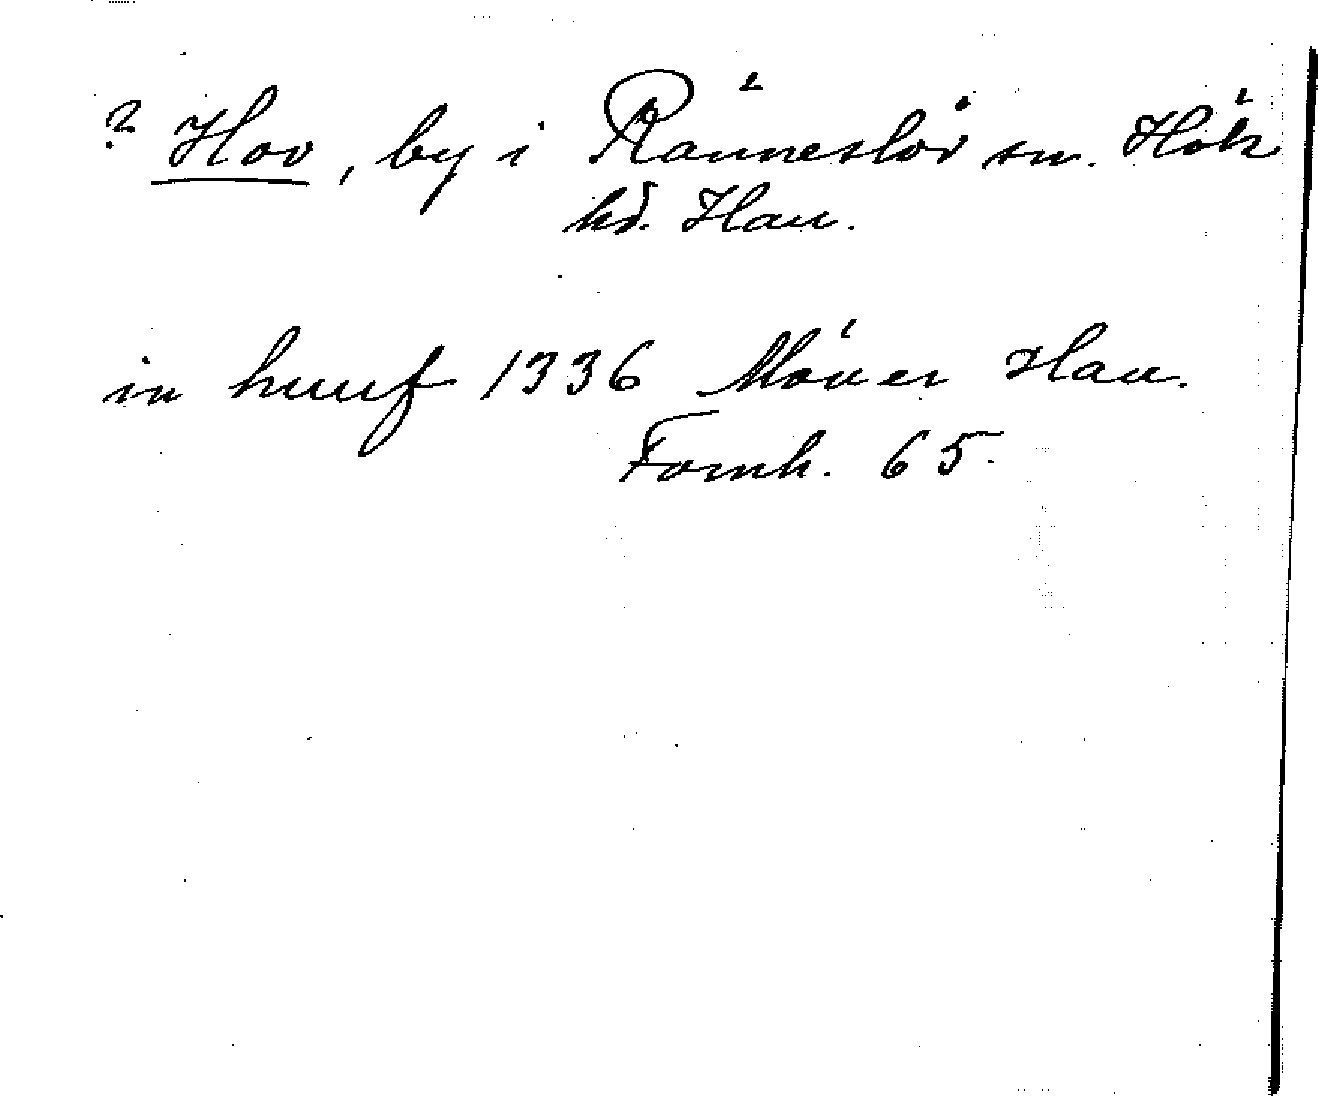 ? Hov, by i Ränneslöv sn. Höks
hd. Hall.
in huuf 1336 Möller Hall.
Fornh. 65.